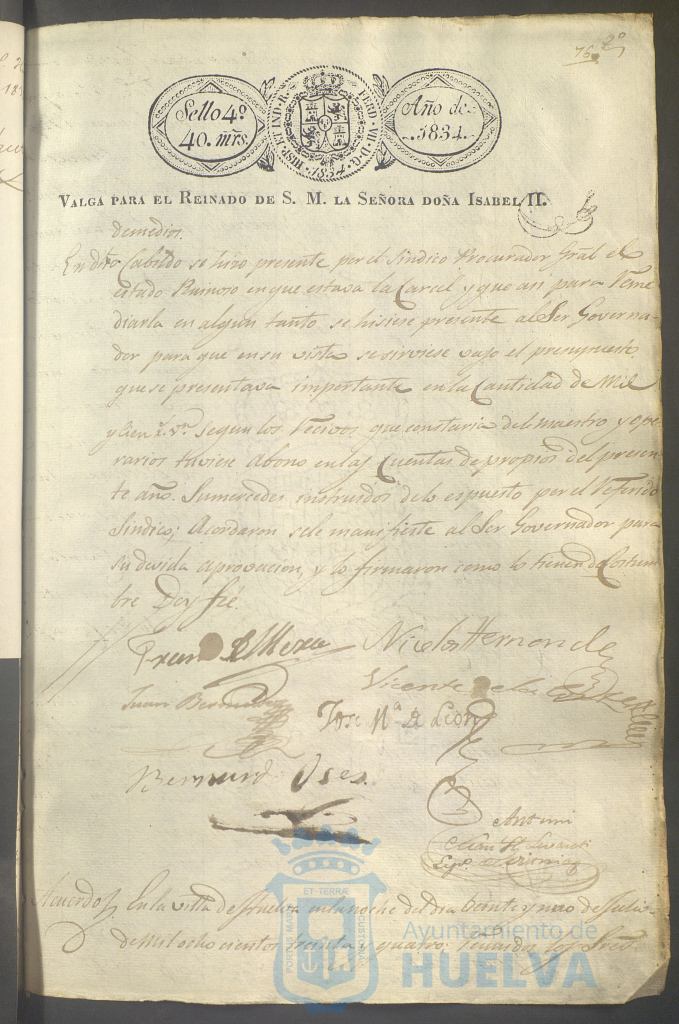 76
Sello 4º
40. mrs.
HISP. ET IND. R. FERD. VII. D. G. 1834
Año de
1834.
VALGA PARA EL REINADO DE S. M. LA SEÑORA DOÑA ISABEL II.
demedios.
En dho Cabildo se hizo presente por el Sindico Procurador Gral el
estado Ruinoso en que estava la Carcel y que asi para Reme
diarla en algun tanto se hisiese presente al Sor Governa-
dor para que en su vista se sirviese vajo el presupuesto
que se presentava importante en la Cantidad de Mil
y Cien r. vn. segun los Recivos que constaria del maestro y ope
rarios tuviese Abono en las Cuentas de propios del presen-
te año. Sumercedes instruidos de lo espuesto por el Referido
Sindico; Acordaron se le manifieste al Sor Governador para
su devida aprovacion, y lo firmaron como lo tienen de Costum
bre Doy fé.
Nicolas Hernandez
Juan Bermudez
Vicente de la
Jose Mª de Leon
Bernardo Oses
Antemi
Acuerdo En la villa de Huelva en la noche del dia veinte y uno de Julio
de Mil ocho cientos treinta y quatro; Reunidos los Sres
PORTUS MARIS ET TERRÆ CUSTODIA
Ayuntamiento de
HUELVA